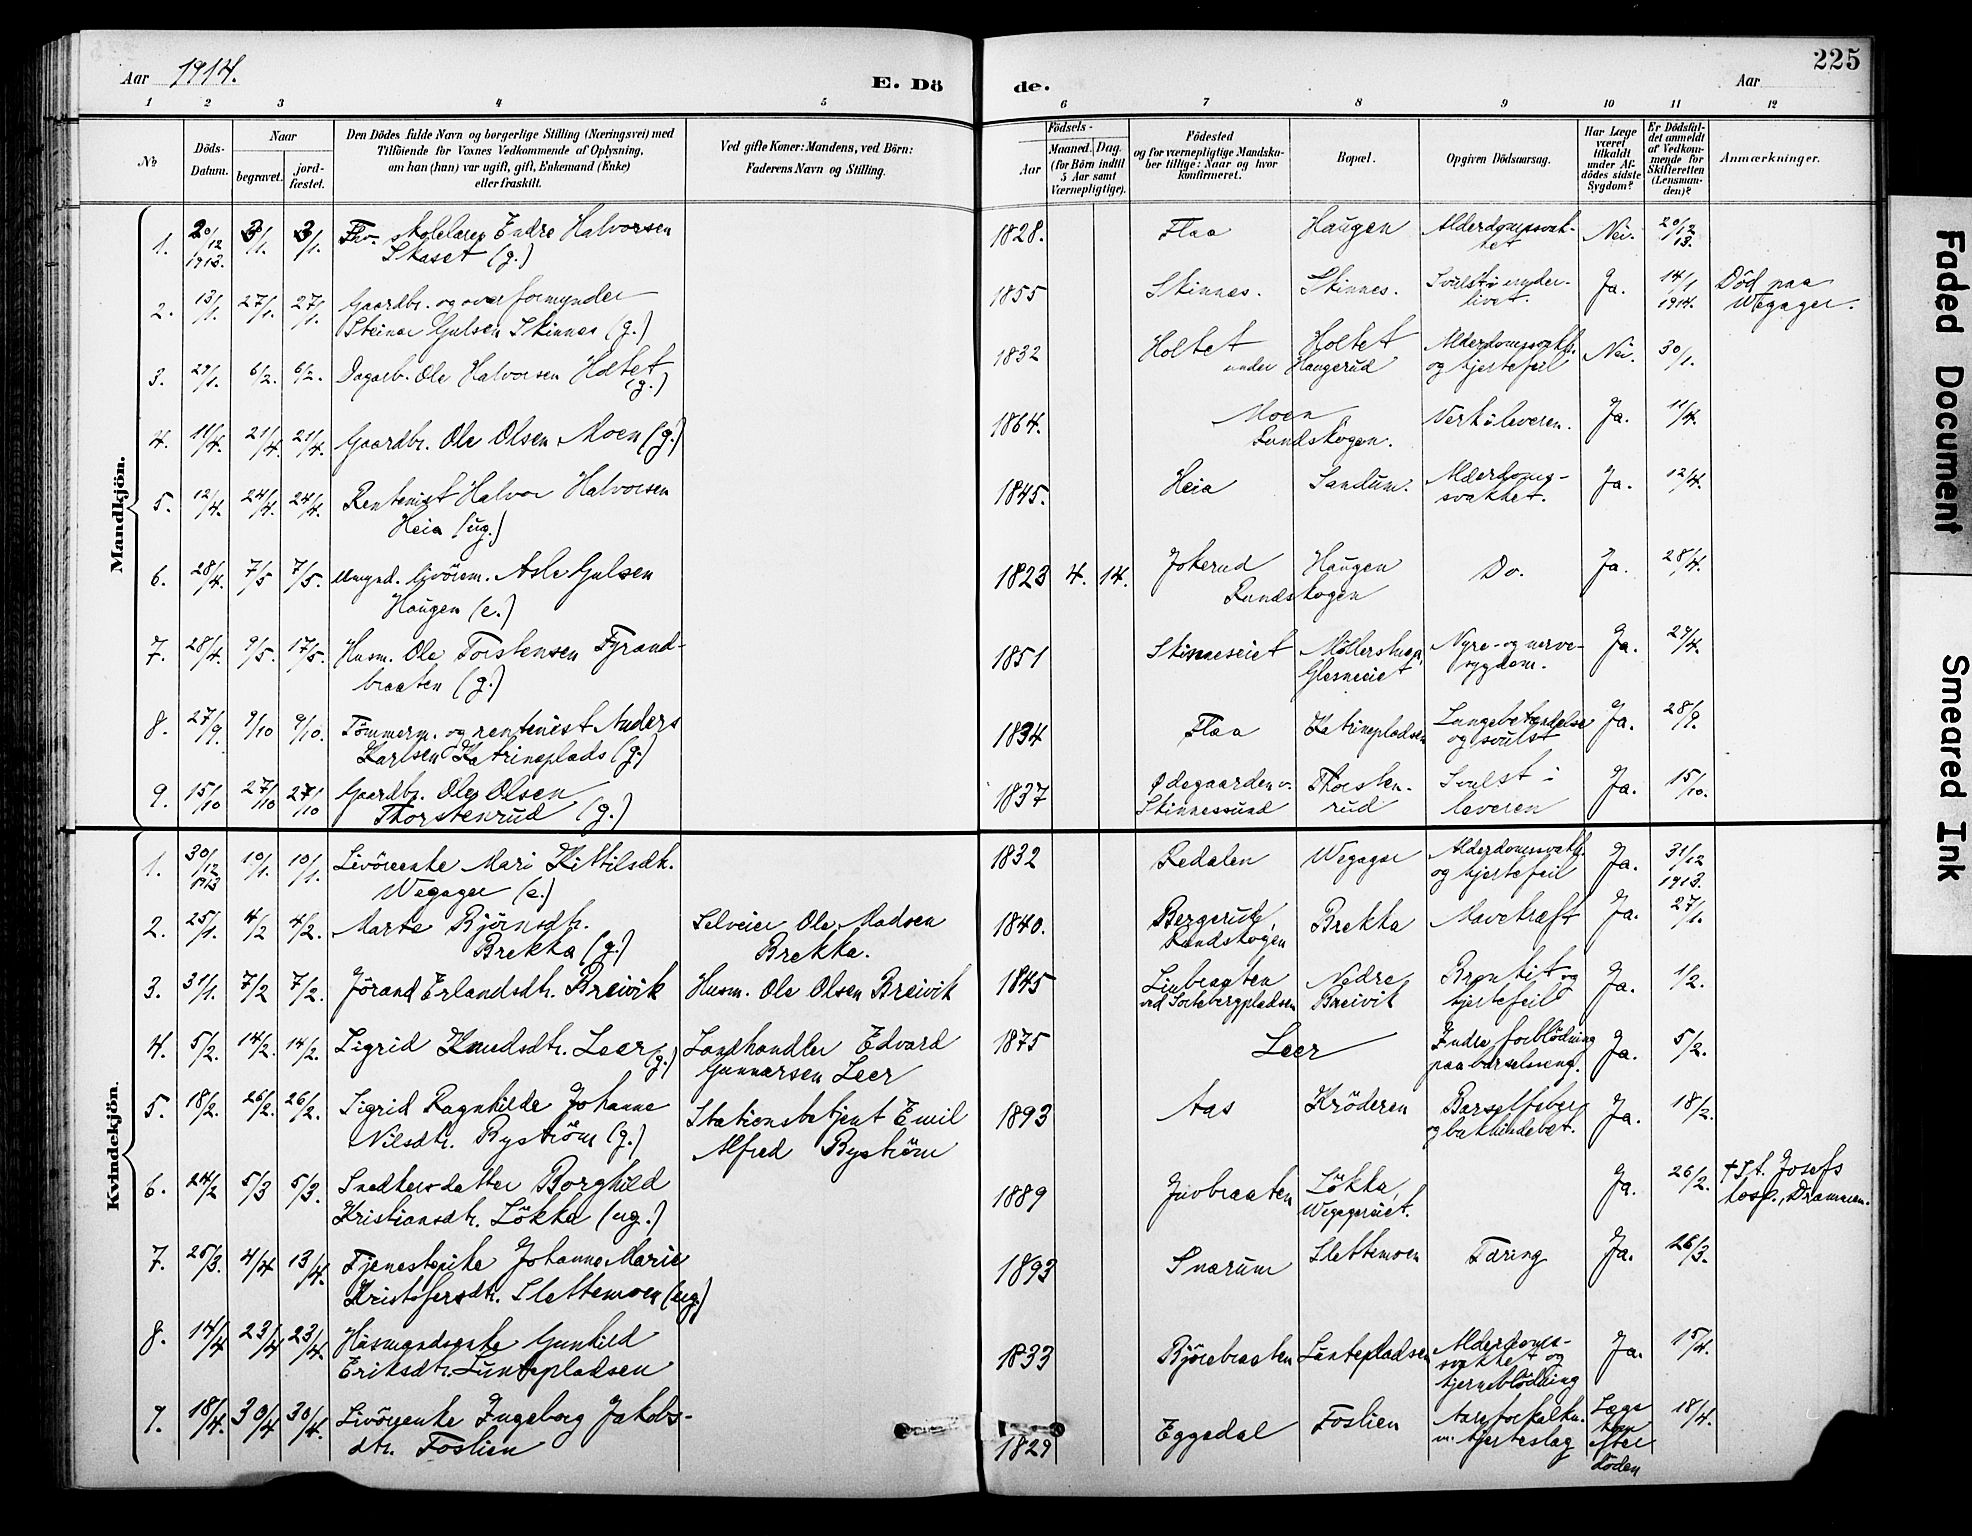 Aar 1914.
E. Dö de.
Aar
225
1 2 3 4 5 6 7 8 9 10 11 12
No
Döds-Datum.
Naar
begravet.
jord-fæstet.
Den Dödes fulde Navn og borgerlige Stilling (Næringsvei) med
Tilföiende for Voxnes Vedkommende af Oplysning,
om han (hun) var ugift, gift, Enkemand (Enke)
eller fraskilt.
Ved gifte Koner: Mandens, ved Börn:
Faderens Navn og Stilling.
Födsels-
Aar
Maaned. Dag.
(for Börn indtil
5 Aar samt
Værnepligtige).
Födested
og for værnepligtige Mandska-
ber tillige: Naar og hvor
konfirmeret.
Bopæl.
Opgiven Dödsaarsag.
Har Læge
været
tilkaldt
under Af-
dödes sidste
Sygdom?
Er Dödsfal-
det anmeldt
af Vedkom-
mende for
Skifteretten
(Lensman-
den)?
Anmærkninger.
Mandkjön.
1. 20/12 1913. 3/1. 3/1. Fhv. skolelærer Endre Halvorsen
Skaset (g.)
1828. Flaa Haugen Alderdomssvak-
het Nei. 20/12 13.
2. 13/1. 27/1. 27/1. Gaardbr. og overformynder
Steinar Gulsen Skinnes (g.)
1855 Skinnes. Skinnes. Svulst i under-
livet. Ja. 14/1 1914. Död paa
Wegager.
3. 29/1. 6/2. 6/2. Dagarb. Ole Halvorsen Holtet
(g.)
1832 Holtet Holtet
under Haugerud
Alderdomssvakh.
og hjertefeil Nei. 30/1.
4. 11/4. 21/4. 21/4. Gaardbr. Ole Olsen Moen (g.)
1864. Moen
Sundskogen. Verk i leveren. Ja. 11/4.
5. 12/4. 24/4. 24/4. Rentenist Halvor Halvorsen
Heia (ug.)
1845. Heia Sandum. Alderdoms-
svakhet. Ja. 12/4.
6. 28/4. 7/5 7/5. Asle Gulsen
Haugen (e.)
1823 4. 14. Jokerud Haugen
Do. Ja. 28/4.
7. 28/4. 9/5. 17/5. Husm. Ole Torstensen Fyrand-
braaten (g.)
1851 Skinneseiet
Glesneeiet
Nyre- og nerve-
sygdom. Ja. 29/4.
8. 27/9. 9/10 9/10. Tömmerm. og rentenist Anders
Karlsen Katrineplads (g.)
1834 Flaa Katrinepladsen Lungebetændelse
og svulst Ja. 28/9.
9. 15/10 27/10 27/10 Gaardbr. Ole Olsen
Thorstenrud (g.)
1837 Ødegaarden v.
Skinnessund Thorsten-
rud Svulst i
leveren Ja. 15/10.
Kvindekjön.
1. 30/12 1913 10/1. 10/1. Livöreenke Mari Kittilsdt.
Wegager (e.)
1832 Redalen Wegager Alderdomssvakh.
og hjertefeil Ja. 31/12 1913.
2. 25/1. 4/2 4/2. Marte Björnsdtr.
Brekka (g.)
Selveier Ole Madsen
Brekka.
1840. Bergerud, Brekka Mavekræft Ja. 27/1.
3. 31/1. 7/2 7/2. Jörand Erlandsdtr. Breivik
Husm. Ole Olsen Breivik
1845 Liebraaten
ved Sorbebergpladsen Nedre
Breivik Bronkit og
hjertefeil Ja. 1/2.
4. 5/2. 14/2. 14/2. Sigrid Knudsdtr. Leer (g.)
Landhandler Edvard
Gunnarsen Leer
1875 Leer Indre forblödning
paa barselseng. Ja. 5/2.
5. 18/2. 26/2. 26/2. Sigrid Ragnhilda Johanne
Nilsdtr. Byström (g.)
Stationsbetjent Emil
Alfred Byström
1893 Aas Kröderen Barselfeber
Ja. 18/2.
6. 24/2 5/3 5/3. Snedkersdatter Borghild
Kristiansdtr. Lökka (ug.)
1889 Juvbraaten Lökka,
Wegagereiet. Ja. 26/2. + St. Josefs
hosp., Drammen.
7. 25/3. 4/4 13/4. Tjenestepike Johanne Marie
Kristofersdtr. Slettemoen (ug.)
1893 Snarum Slettemoen Tæring Ja. 26/3.
8. 14/4 23/4 23/4. Husmandsenke Gunhild
Eriksdtr. Luntepladsen
1833 Björebraaten Luntepladsen Alderdoms-
svakhet og
hjerneblödning Ja. 15/4.
9. 18/4. 30/4 30/4. Livöreenke Ingeborg Jakobs-
dtr. Foslien
1829 Eggedal Foslien Aareforkalkn.
m. hjerteslag Læge
kom
efter
döden 18/4.
Faded Document
Smeared Ink